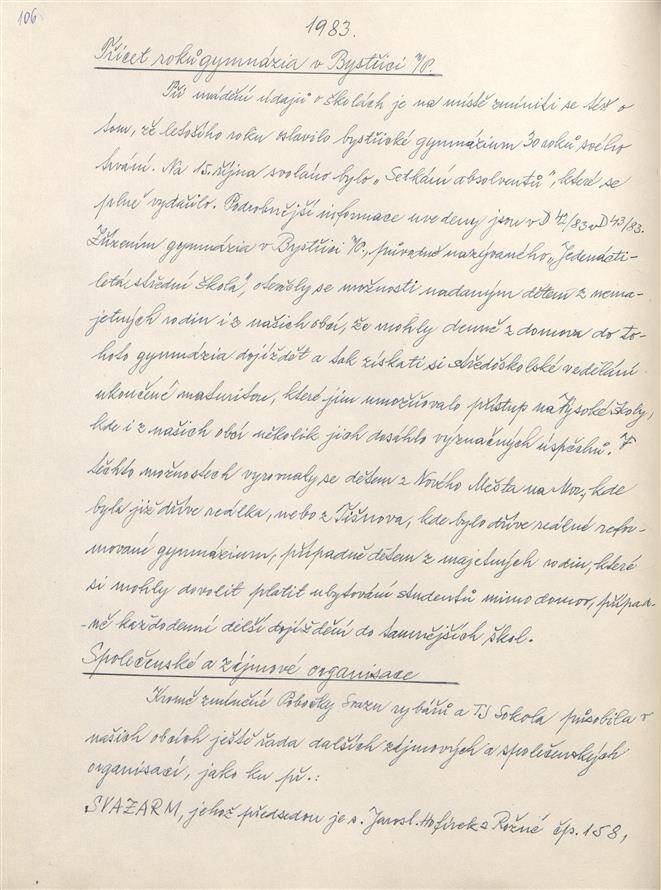 106
1983.
Třicet roků gymnázia v Bystřici n/P.
Při uvádění údajů o školách je na místě zmíniti se též o
tom, že letošího roku oslavilo bystřické gymnázium 30 roků svého
trvání. Na 15. října svoláno bylo „Setkání absolventů", které se
plně vydařilo. Podrobnější informace uvedeny jsou v D 42/83 a D 43/83.
Zřízením gymnázia v Bystřici n/P., původně nazývaného „Jedenácti-
letá střední škola", otevřely se možnosti nadaným dětem z nema-
jetných rodin i z našich obcí, že mohly denně z domova do to-
hoto gymnázia dojíždět a tak získati si středoškolské vzdělání
ukončené maturitou, které jim umožňovalo přístup na Vysoké školy,
kde i z našich obcí několik jich dosáhlo význačných úspěchů. V
těchto možnostech vyrovnaly se dětem z Nového Města na Mor., kde
byla již dříve reálka, nebo z Tišnova, kde bylo dříve reálné refor-
mované gymnázium, případně dětem z majetných rodin, které
si mohly dovolit platit ubytování studentů mimo domov, případ-
-ně každodenní delší dojíždění do tamnějších škol.
Společenské a zájmové organisace
Kromě zmíněné Pobočky Svazu rybářů a TJ Sokola působila v
našich obcích ještě řada dalších zájmových a společenských
organisací, jako ku př.:
SVAZARM, jehož předsedou je s. Jarosl. Hofírek z Rožné čp. 158,